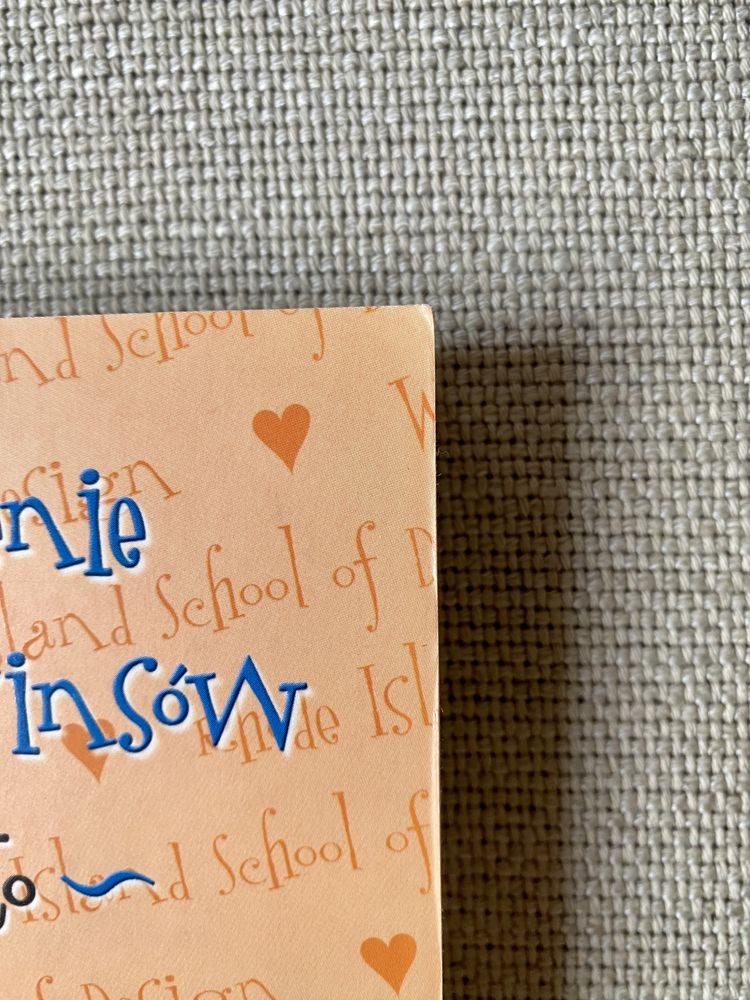 nd School of D
W
esign
enie
land School of D
insów
Rhode Isl
to
Island School of
f Design